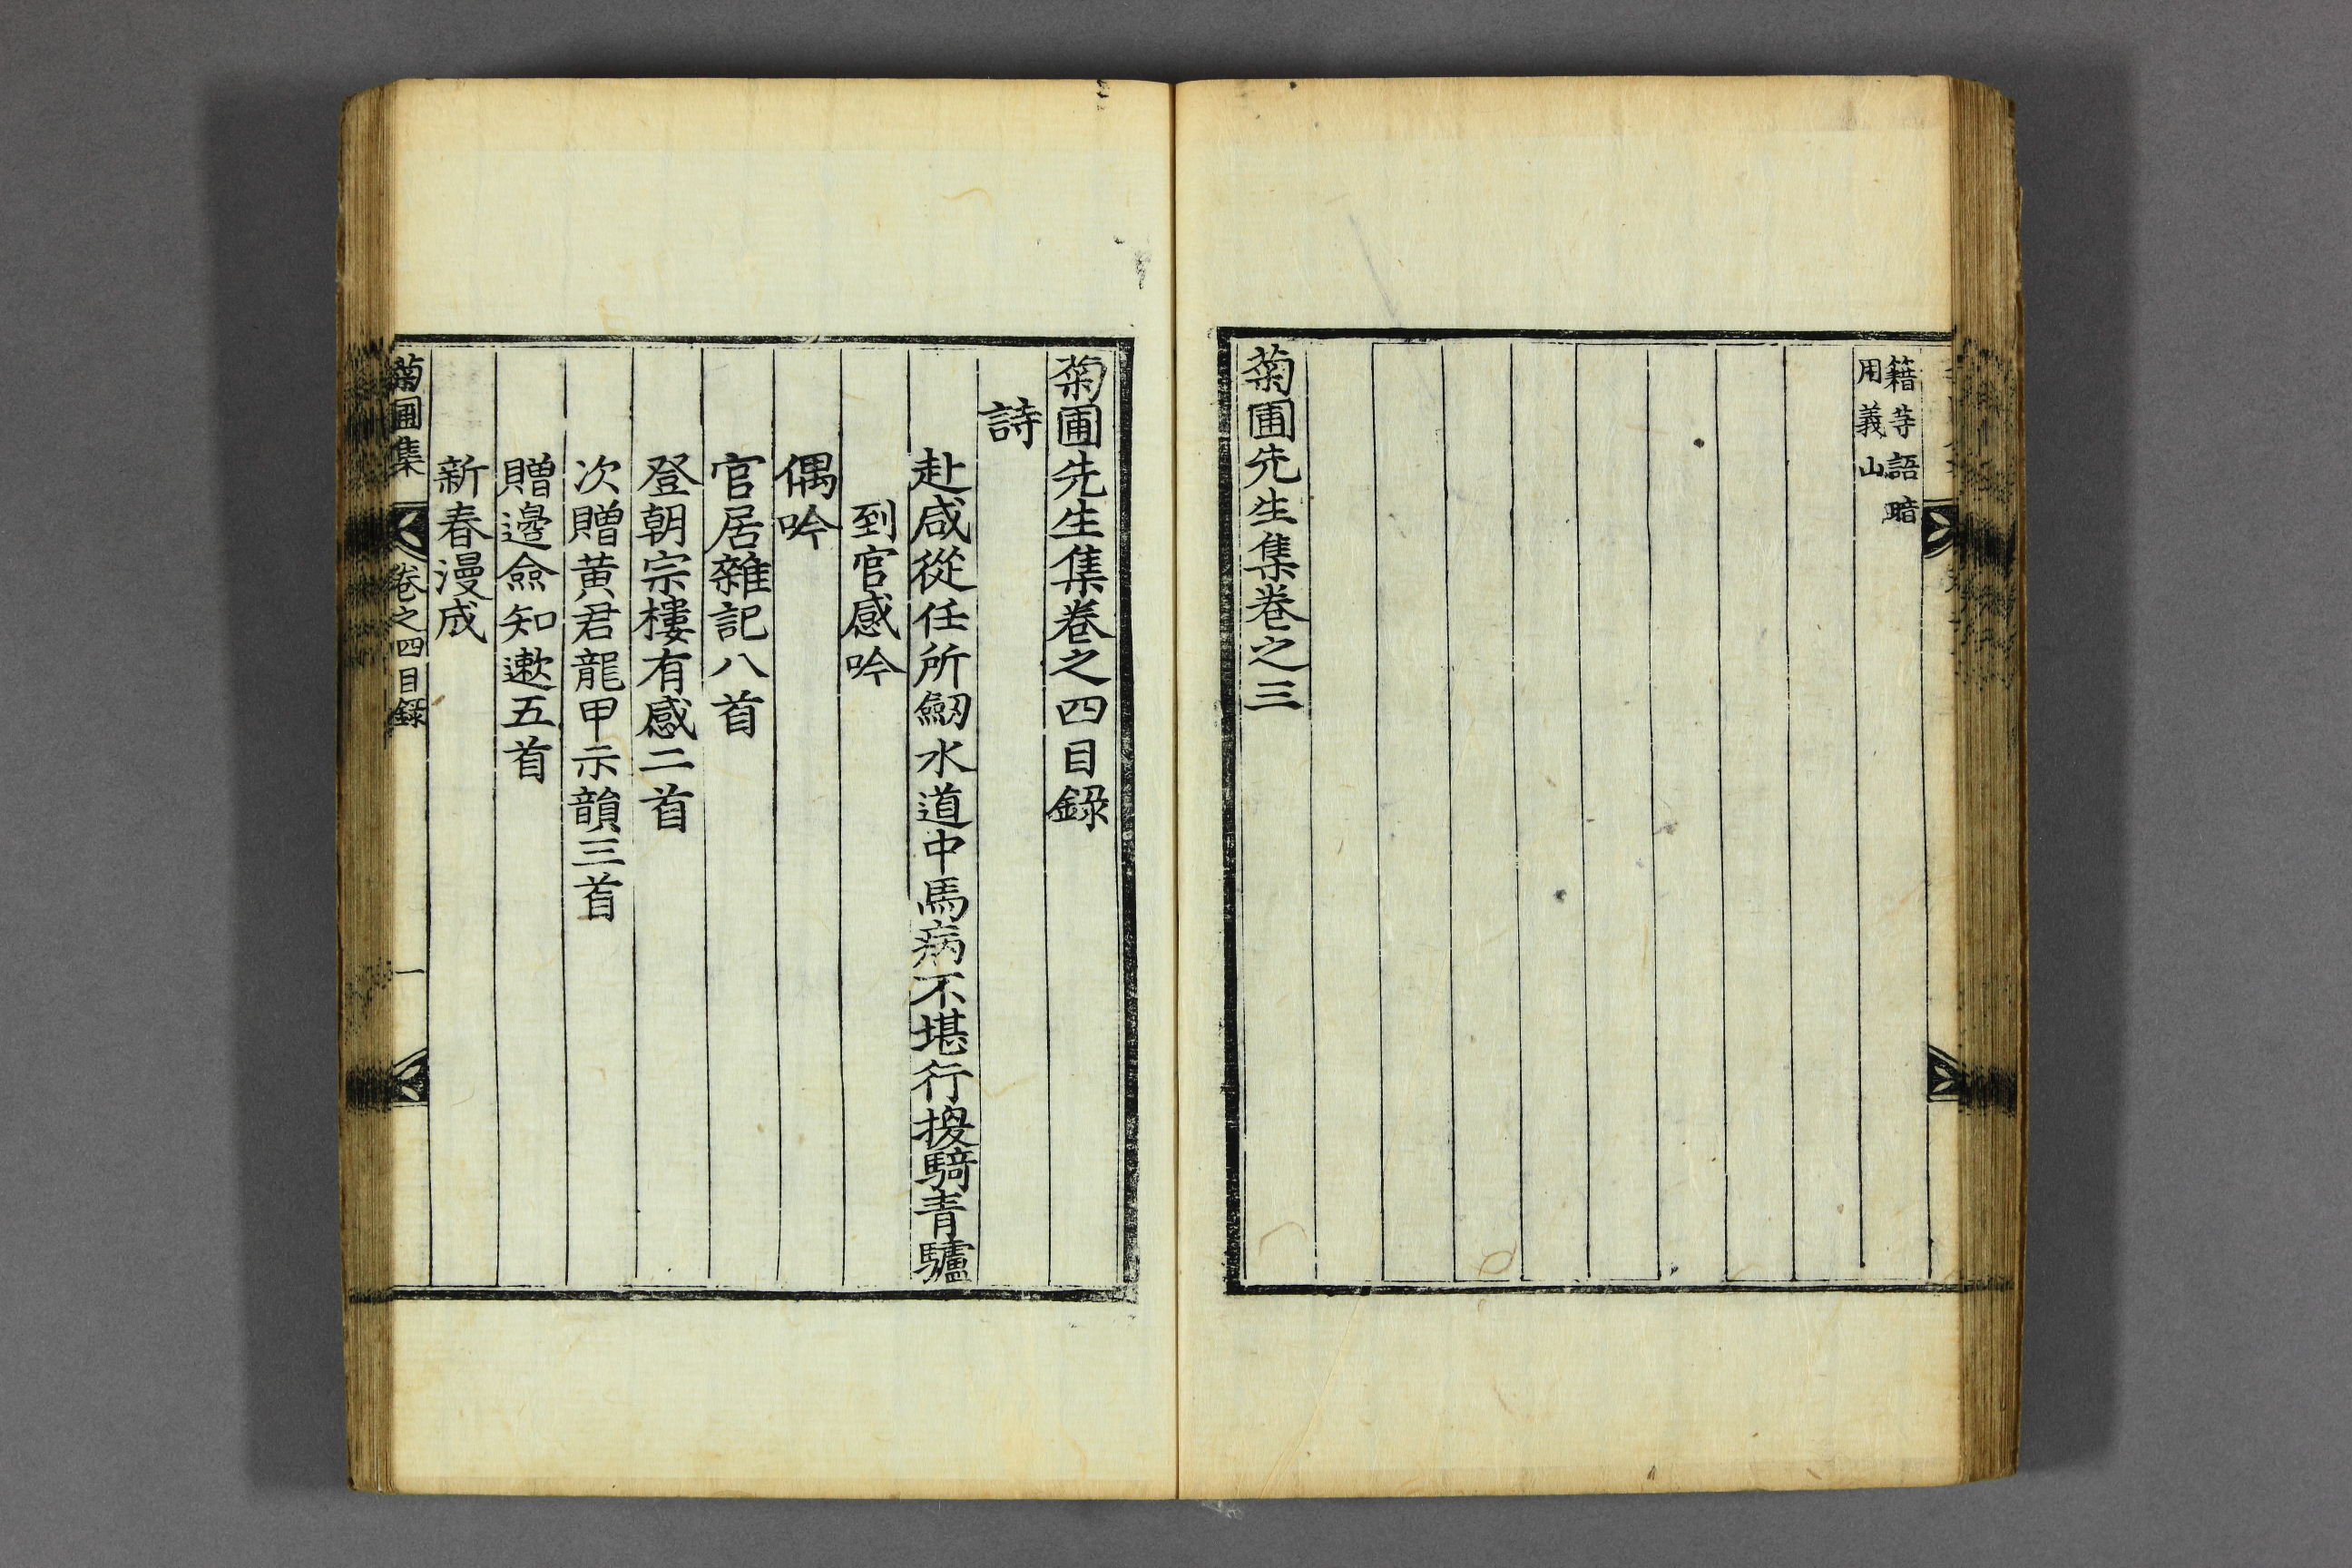 籍寺語暗
用義山
菊圃先生集卷之三
菊圃先生集卷之四目錄
詩
赴咸從任所劒水道中馬病不堪行換騎青驢
到官感吟
偶吟
官居雜記八首
登朝宗樓有感二首
次贈黄君龍甲示韻三首
贈邊僉知漱五首
新春漫成
菊圃集 卷之四目錄 一